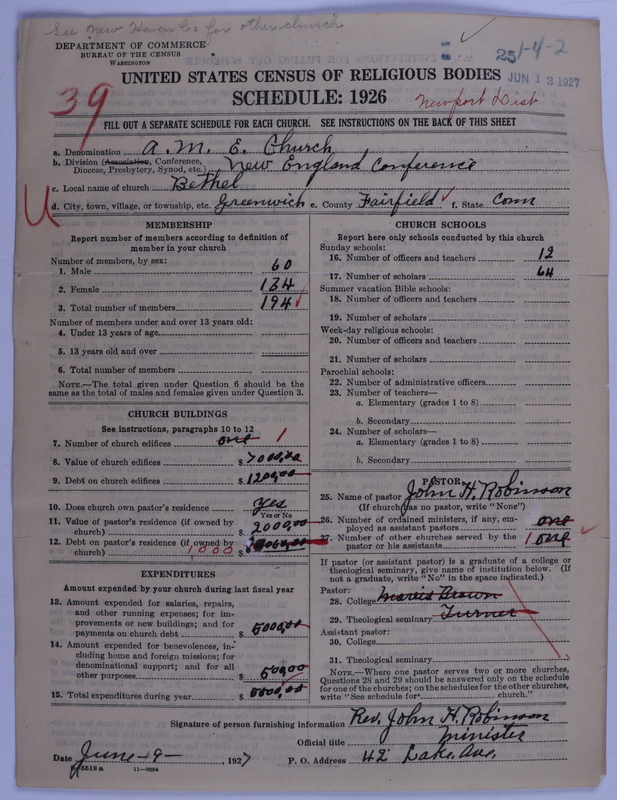 See New Haven Co for other church
DEPARTMENT OF COMMERCE
BUREAU OF THE CENSUS
WASHINGTON
251-4-2
JUN 13 1927
UNITED STATES CENSUS OF RELIGIOUS BODIES
SCHEDULE: 1926
39
Newport Dist
FILL OUT A SEPARATE SCHEDULE FOR EACH CHURCH. SEE INSTRUCTIONS ON THE BACK OF THIS SHEET
a. Denomination A. M. E. Church
b. Division (Association, Conference, Diocese, Presbytery, Synod, etc.) New England Conference
c. Local name of church Bethel
U
d. City, town, village, or township, etc. Greenwich e. County Fairfield f. State Conn
MEMBERSHIP
Report number of members according to definition of
member in your church
Number of members, by sex:
1. Male 60
2. Female 134
3. Total number of members 194
Number of members under and over 13 years old:
4. Under 13 years of age
5. 13 years old and over
6. Total number of members
NOTE.—The total given under Question 6 should be the
same as the total of males and females given under Question 3.
CHURCH BUILDINGS
See instructions, paragraphs 10 to 12
7. Number of church edifices one 1
8. Value of church edifices $7000,00
9. Debt on church edifices $1200,00
10. Does church own pastor's residence Yes
Yes or No
11. Value of pastor's residence (if owned by
church) $2000,00
12. Debt on pastor's residence (if owned by
church) 1,000 $
EXPENDITURES
Amount expended by your church during last fiscal year
13. Amount expended for salaries, repairs,
and other running expenses; for im-
provements or new buildings; and for
payments on church debt $5000,00
14. Amount expended for benevolences, in-
cluding home and foreign missions; for
denominational support; and for all
other purposes $500,00
15. Total expenditures during year $5500,00
CHURCH SCHOOLS
Report here only schools conducted by this church
Sunday schools:
16. Number of officers and teachers 12
17. Number of scholars 64
Summer vacation Bible schools:
18. Number of officers and teachers
19. Number of scholars
Week-day religious schools:
20. Number of officers and teachers
21. Number of scholars
Parochial schools:
22. Number of administrative officers
23. Number of teachers—
a. Elementary (grades 1 to 8)
b. Secondary
24. Number of scholars—
a. Elementary (grades 1 to 8)
b. Secondary
PASTOR
25. Name of pastor John H. Robinson
(If church has no pastor, write "None")
26. Number of ordained ministers, if any, em-
ployed as assistant pastors one
27. Number of other churches served by the
pastor or his assistants 1 one
If pastor (or assistant pastor) is a graduate of a college or
theological seminary, give name of institution below. (If
not a graduate, write "No" in the space indicated.)
Pastor:
28. College Morris Brown
29. Theological seminary Turner
Assistant pastor:
30. College
31. Theological seminary
NOTE.—Where one pastor serves two or more churches,
Questions 28 and 29 should be answered only on the schedule
for one of the churches; on the schedules for the other churches,
write "See schedule for church."
Signature of person furnishing information Rev. John H. Robinson
Official title minister
Date June-9-, 1927
P. O. Address 42 Lake, Ave,
8-5518 a 11-9024